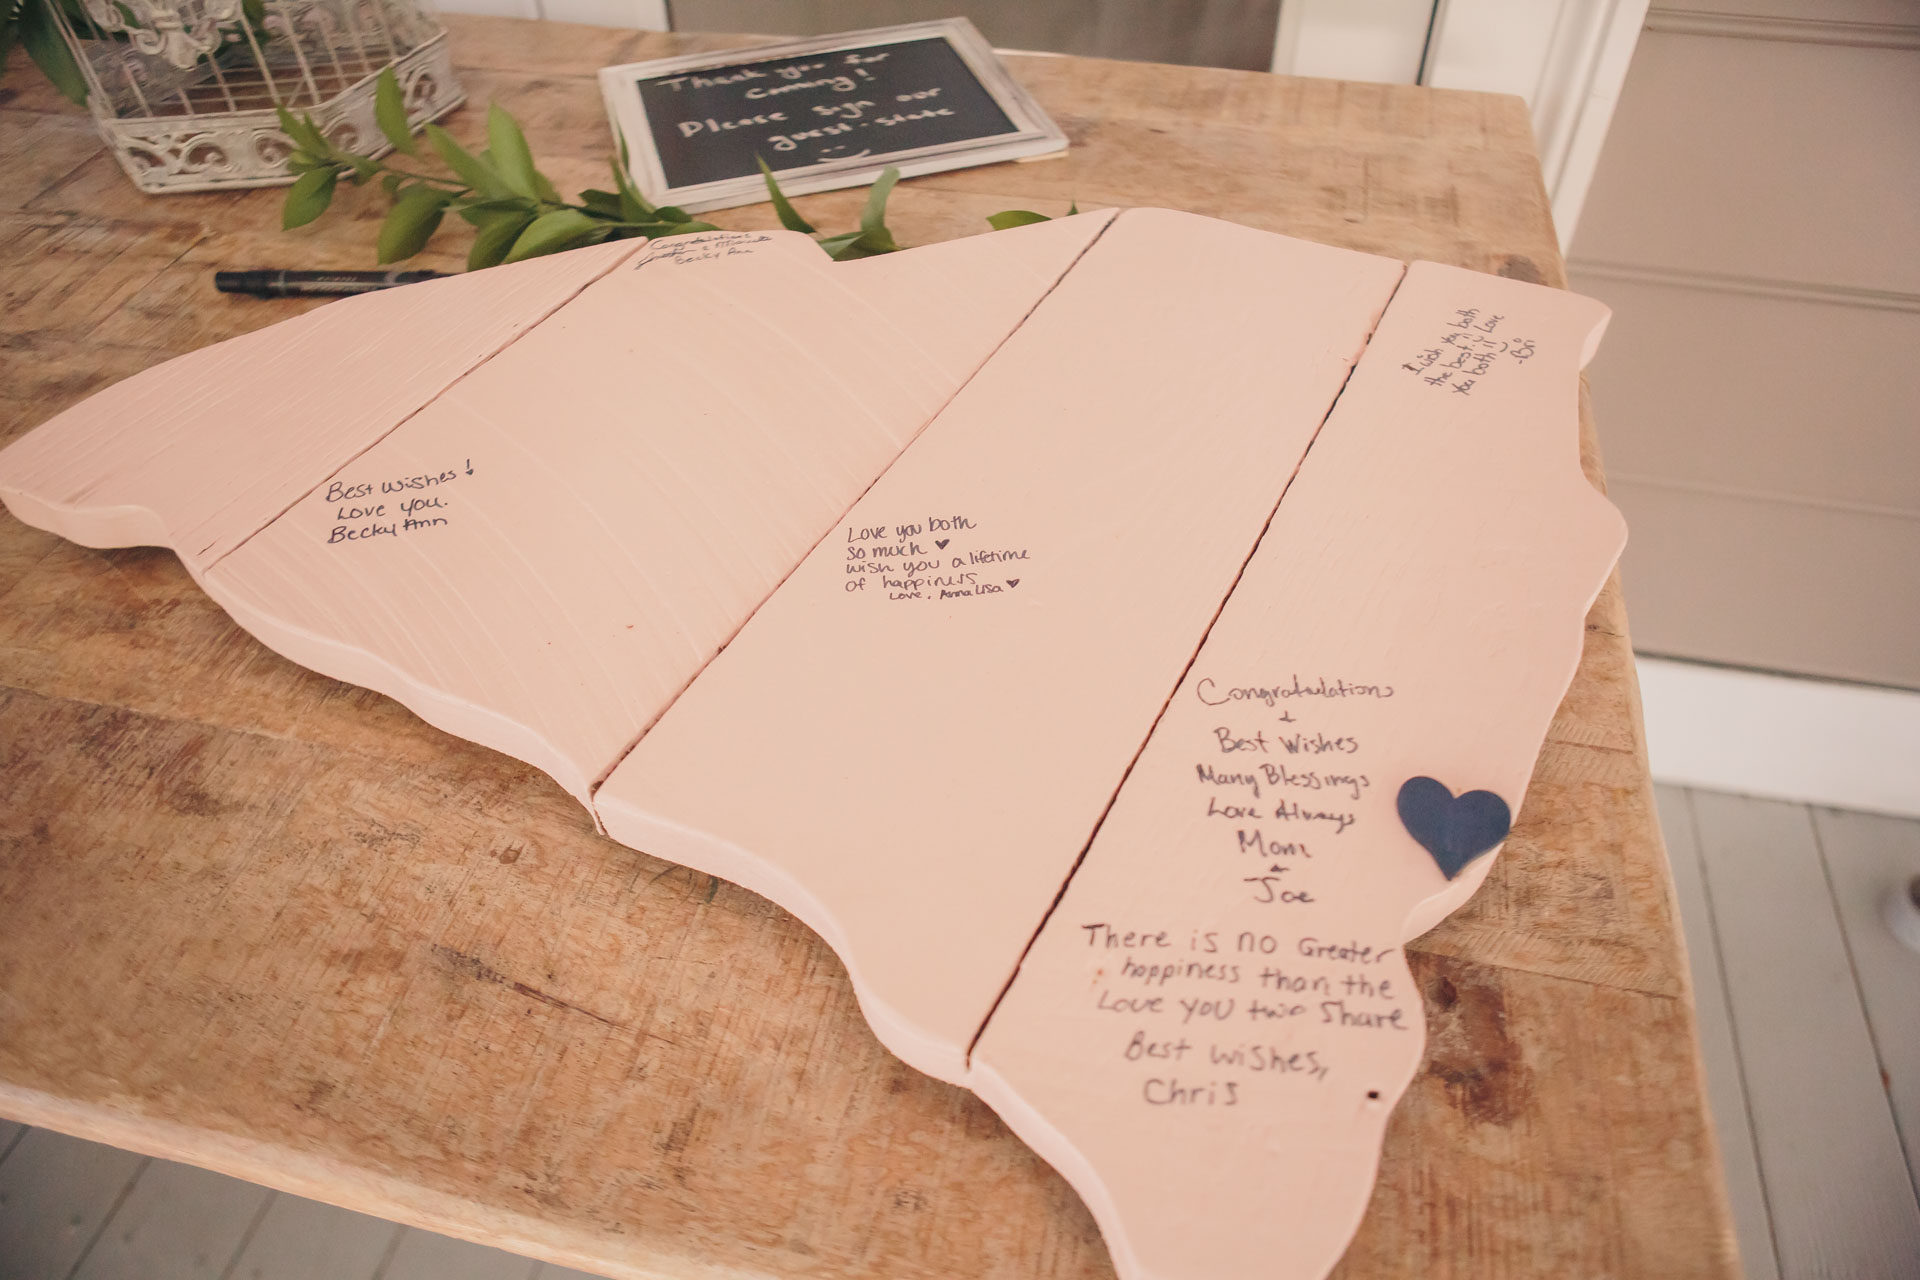 Thank you for
Coming!
Please sign our
guest-state
Congratulations
& Michelle
Becky Ann
I wish you both
the best :) Love
you both!!
-Bri
Best Wishes!
Love you.
Becky Ann
Love you both
so much ♥
wish you a lifetime
of happiness
Love, AnnaLisa ♥
Congratulations
+
Best Wishes
Many Blessings
Love Always
Mom
+
Joe
There is no Greater
happiness than the
Love you two Share
Best wishes,
Chris